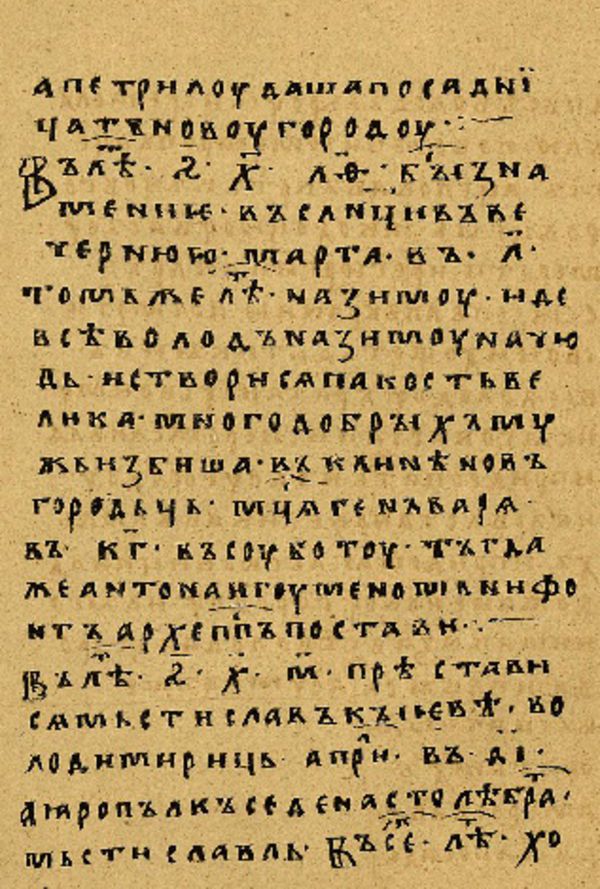 а петрилоу даша посадьни
чать новоу городоу ·
Въ лѣ҃т · ѕ҃ · х҃ · л҃ѳ · бы҃ зна
мениѥ · въ сл҃нци въ ве
чернюю · марта · въ · л҃ ·
томь же лѣ҃т · на зимоу · иде
всѣволодъ на зимоу на чю
дь · и створися пакость ве
лика · много добрыхъ му
жь избиша · въ клинѣ новъ
городьчь · мц҃ѧ генъварѧ
въ · к҃г · въ соуботоу · тъгда
же антона игоуменомь нифо
нтъ археп҃пъ постави ·
Въ лѣ҃т · ѕ҃ · х҃ · м҃ · прѣстави
сѧ мьстиславъ кыѥвѣ · во
лодимириць април · въ · д҃і ·
а ӕропълкъ седе на столѣ бра҃т ·
мьстиславль · Въ се · лѣ҃т · хо